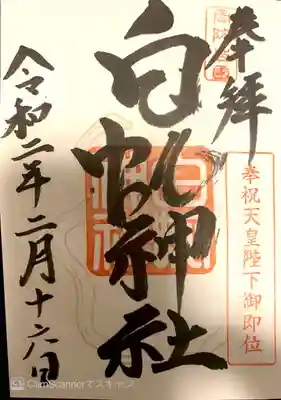 奉拝
奉祝天皇陛下御即位
白蛇神社
令和二年二月十六日
CamScannerでスキャン